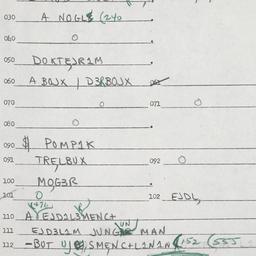 030 A NOGLS (240
040 O
050 DOKTE,R1M
060 A BOJX | D3RBOJX
070 O 071 O
080 O
090 $ POMP1K
091 TRE,LBUX 092 O
100 MOG3R
101 O 102 EJDL,
110 A EJD2L3MENC+
111 EJD3L1M JUNG MAN
112 -BUT SMENC+L1N1N (152 (555